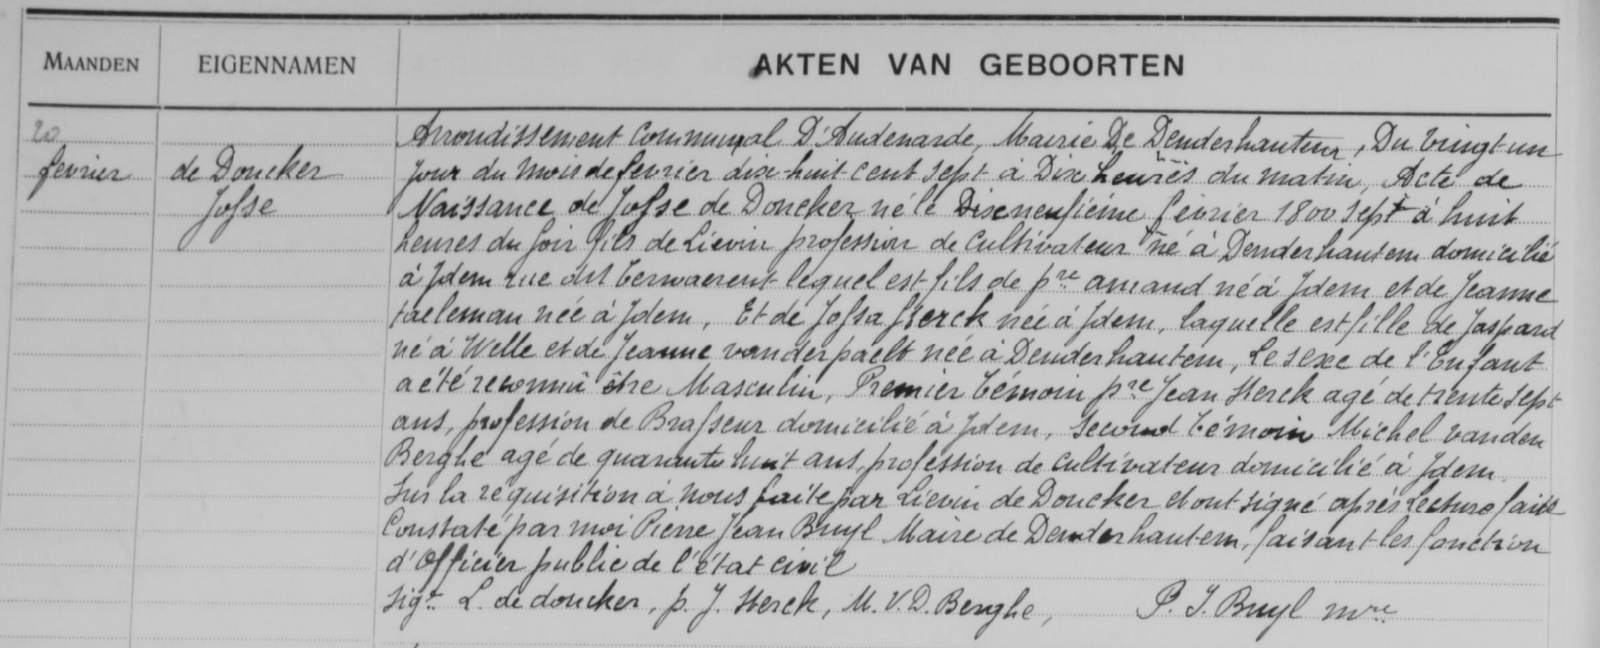 MAANDEN
EIGENNAMEN
AKTEN VAN GEBOORTEN
20
fevrier
de Doncker
Josse
Arrondissement Communal D'Audenarde, Mairie De Denderhautem, Du vingt un
jour du mois de fevrier dix-huit cent sept à Dix heures du matin, Acte de
Naissance de Josse de Doncker né le Dixneuficime fevrier 1800 sept à huit
heures du soir fils de Liévin profession de Cultivateur né à Denderhautem domicilié
à Jdem rue dit terwaerent lequel est fils de pre amand né à Jdem et de Jeanne
taeleman née à Jdem, Et de Jossa Sterck née à Jdem, laquelle est fille de Jaspard
né à Welle et de Jeanne vanderpaelt née à Denderhautem, Le sexe de l'Enfant
a été reconnu être Masculin, Premier témoin pre Jean Sterck agé de trente sept
ans, profession de Brasseur domicilié à Jdem, Second témoin Michel vanden
Berghe agé de quarante huit ans, profession de cultivateur domicilié à Jdem.
Sur la requisition à nous faite par Lievin de Doncker et ont signé après Lecture faite
Constaté par moi Pierre Jean Bruyl Maire de Denderhautem, faisant les fonction
d'Officier public de l'état civil
sigt L. de doncker, p. J. Sterck, M. V. D. Berghe, P. J. Bruyl mre